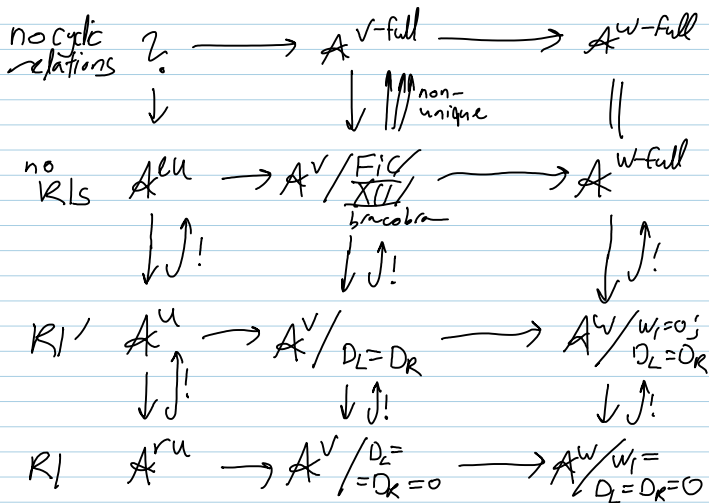 no cyclic relations ? → A^{v-full} → A^{w-full}
↓ ↓ ↑↑↑ non-unique ||
no RIs A^{eu} → A^v / FiC / XII / bracobra → A^{w-full}
↓ ↑! ↓ ↑! ↓ ↑!
RI' A^u → A^v / D_L = D_R → A^w / w_1=0; D_L=D_R
↓ ↑! ↓ ↑! ↓ ↑!
RI A^{ru} → A^v / D_L = = D_R = 0 → A^w / w_1 = D_L = D_R = 0